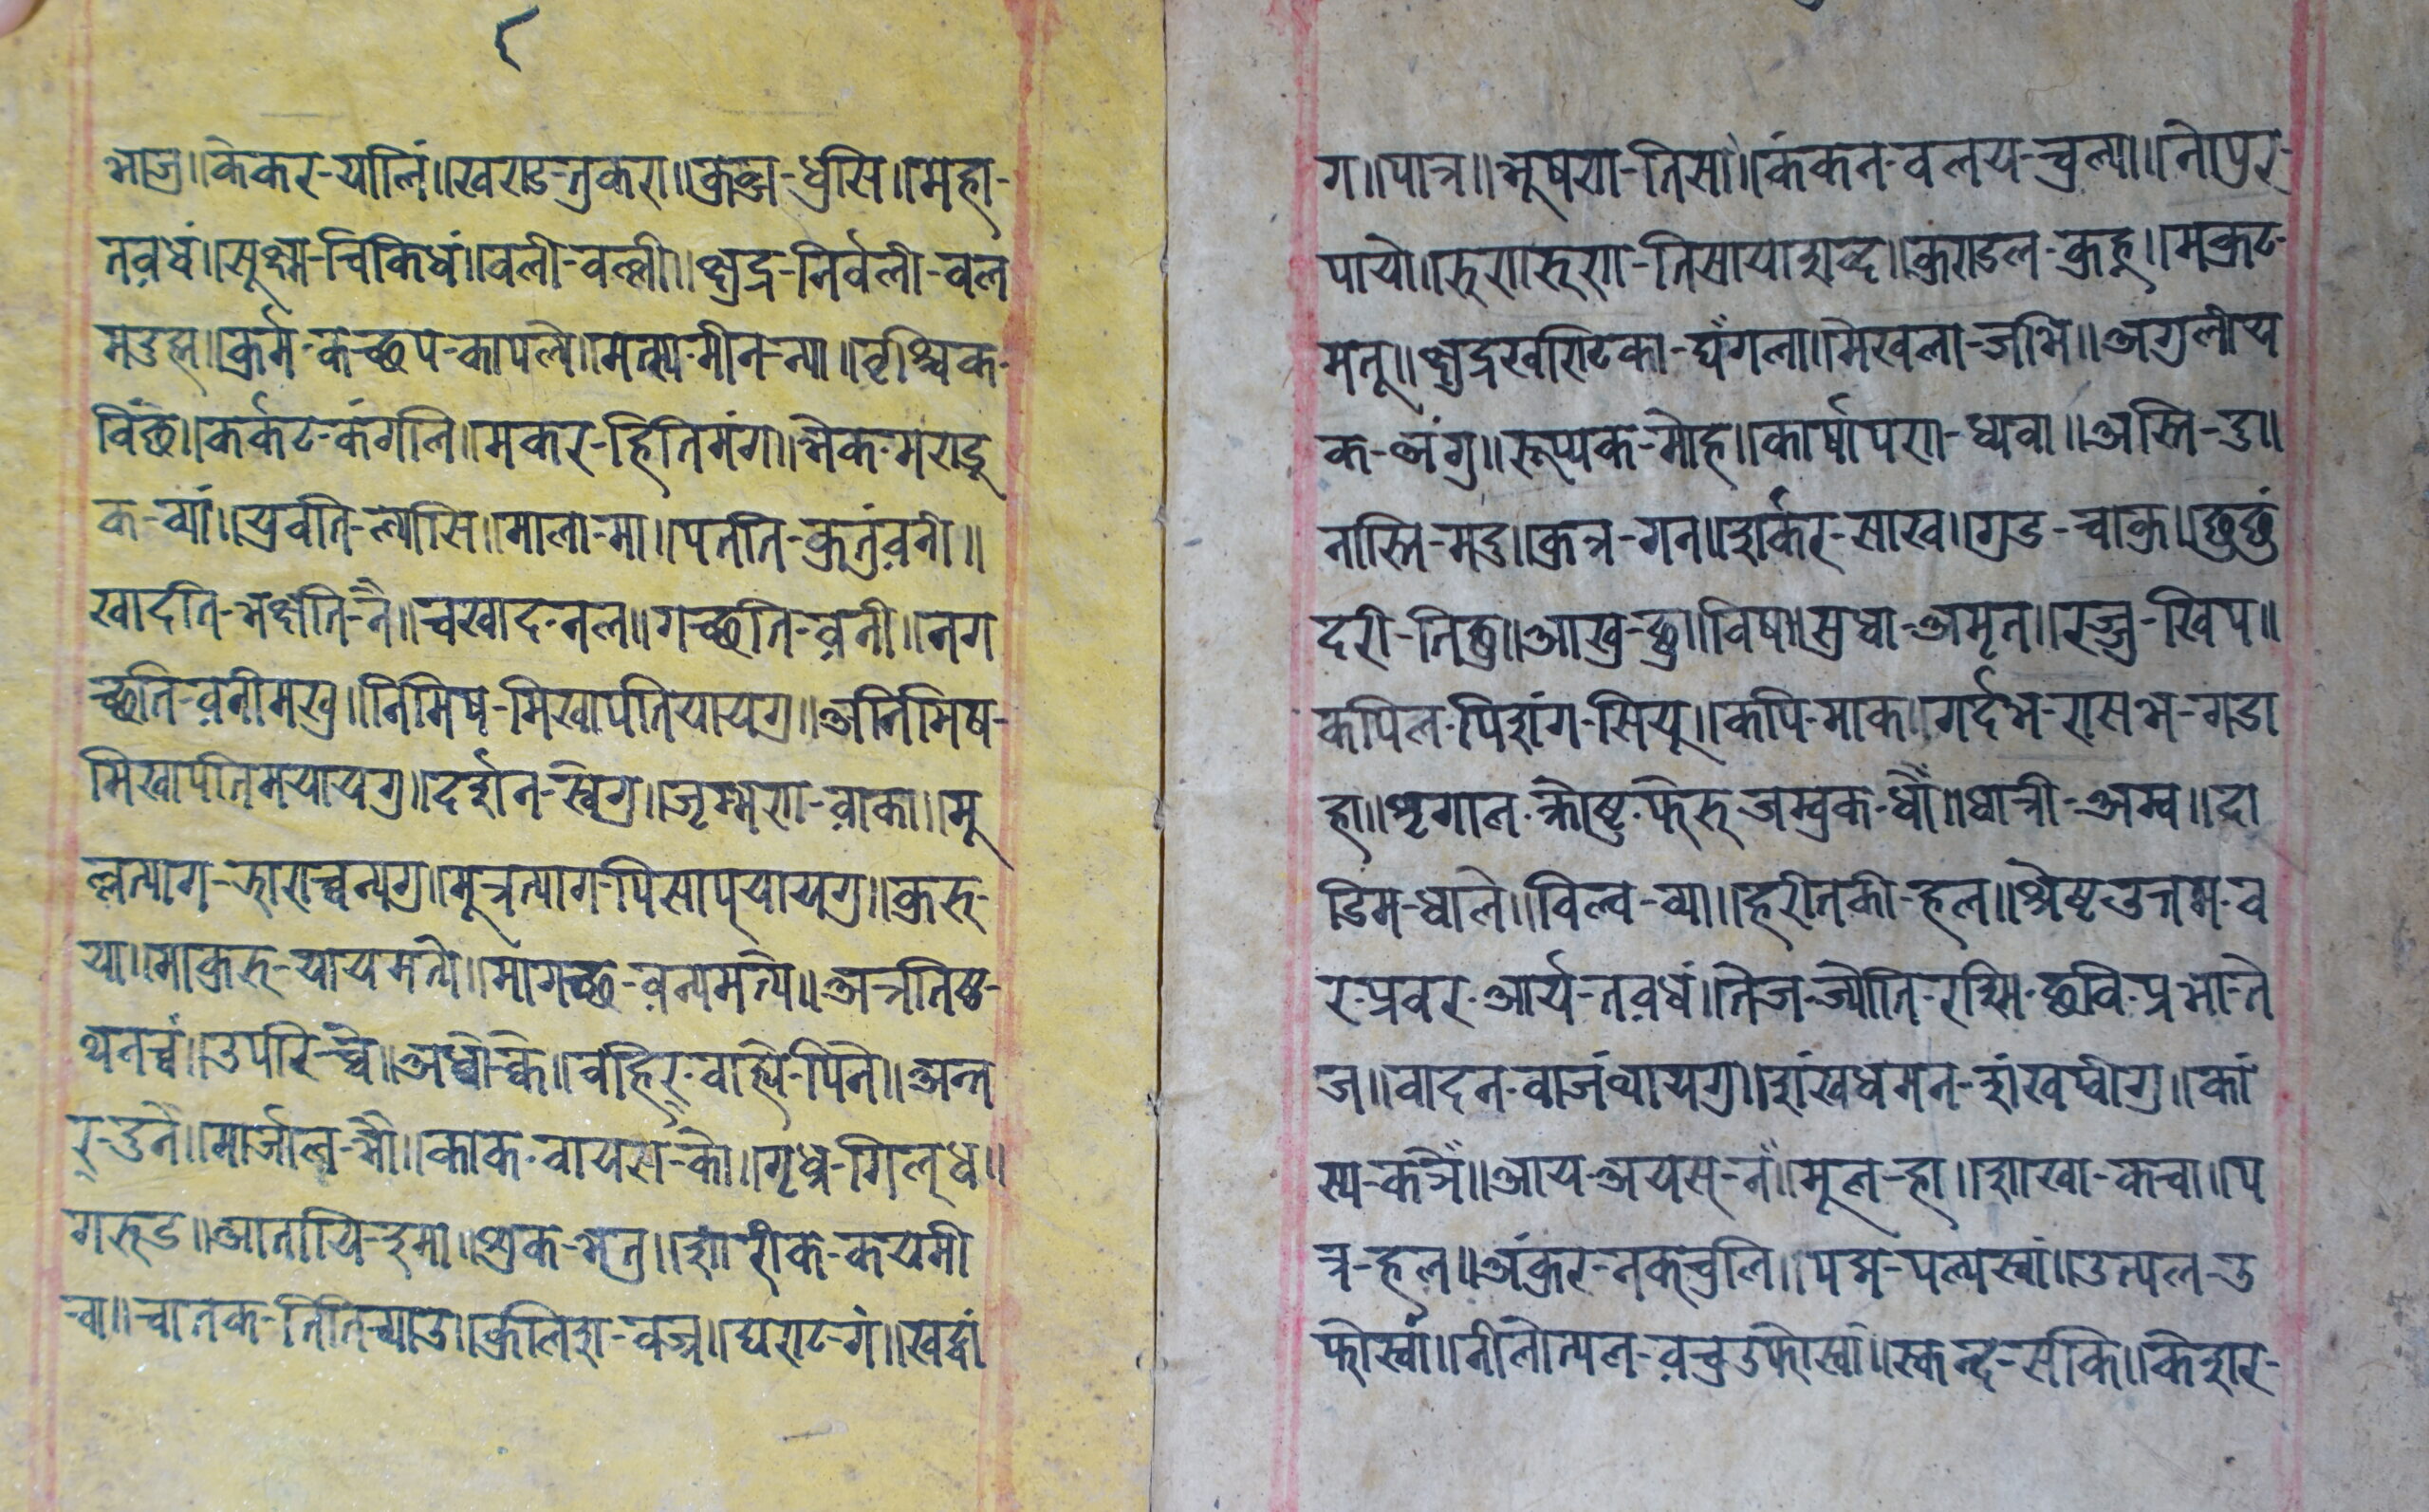 भाजु॥केकर-यालिं॥खराड-तुकरा॥कुब्ज-धुसि॥मेहा-
तवधं॥सूक्ष्म-चिकिधं॥वली-वल्ली॥क्षुद्र-निर्वली-वल
मडुह्म॥कुर्म-कच्छप-कापल्ये॥मत्स्य-मीन-न्या॥वृश्चिक-
विंछे॥कर्कट-कंगलि॥मकर-हितिमंग॥भेक-मराडू
क-व्यां॥युवति-ल्यासि॥माला-मा॥पतति-कुतुंवनी॥
खादति-भक्षति-नै॥चखाद-नल॥गच्छति-वनी॥नग
च्छति-वनीमखु॥निमिष-मिखापतियायगु॥अनिमिष-
मिखापतिमयायगु॥दर्शन-स्वेगु॥जृम्भरा-वाका॥मू
ल्लत्याग-झाराच्वन्यगु॥मूत्रत्याग-पिसाप्यायगु॥कुरु-
या॥माकुरु-यायमत्ये॥मागच्छ-वन्यमत्ये॥अत्रतिष्ठ-
थनच्वं॥उपरि-च्वे॥अधो-क्वे॥वहिर्-वाह्ये-पिने॥अन्त
र्-दुने॥मार्जाल-भौ॥काक-वायस-कौ॥गृध्र-गिल्ध॥
गरुड॥आतायि-इमा॥शुक-भतु॥शारीक-कयमी
चा॥चातक-तितिच्याउ॥कुलिश-वज्र॥घराट-गं॥खद्वां
ग॥पात्र॥भूषरा-तिसा॥कंकन-वलय-चुल्या॥नेपुर-
पायो॥रुराारुराा-तिसायाशब्द॥कुराडल-कुहू॥मकुट-
मतू॥क्षुद्रखरािटका-घँगला॥मेखला-जभि॥अगुलीय
क-अंगु॥रूप्यक-मोह॥कार्षापरा-ध्यवा॥अस्ति-दु॥
नास्ति-मदु॥कुत्र-गन॥शर्कर-साख॥गुड-चाकु॥छुछुं
दरी-तिछु॥आखु-छु॥विष॥सुधा-अमृत॥रज्जु-खिप॥
कपिल-पिशंग-सियू॥कपि-माक॥गर्दभ-रासभ-गडा
हा॥शृगाल-क्रोष्टु-फेरु-जम्बुक-धौं॥धात्री-अम्व॥दा
डिम-धाले॥विल्व-व्या॥हरीतकी-हल॥श्रेष्ट-उत्तम-व
र-प्रवर-आर्य-तवधं॥तेज-ज्योति-रश्मि-छवि-प्रभा-ते
ज॥वादन-वाजंथायगु॥शंखधमन-शंखप्वीगु॥कां
स्य-कञँ॥आय-अयस्-नँ॥मूल-हा॥शाखा-कचा॥प
त्र-हल॥अंकुर-नक्चुलि॥पद्म-पल्यस्वां॥उत्पल-उ
फोस्वां॥नीलोत्पल-वचुउफोस्वां॥स्कन्द-सकि॥केशर-